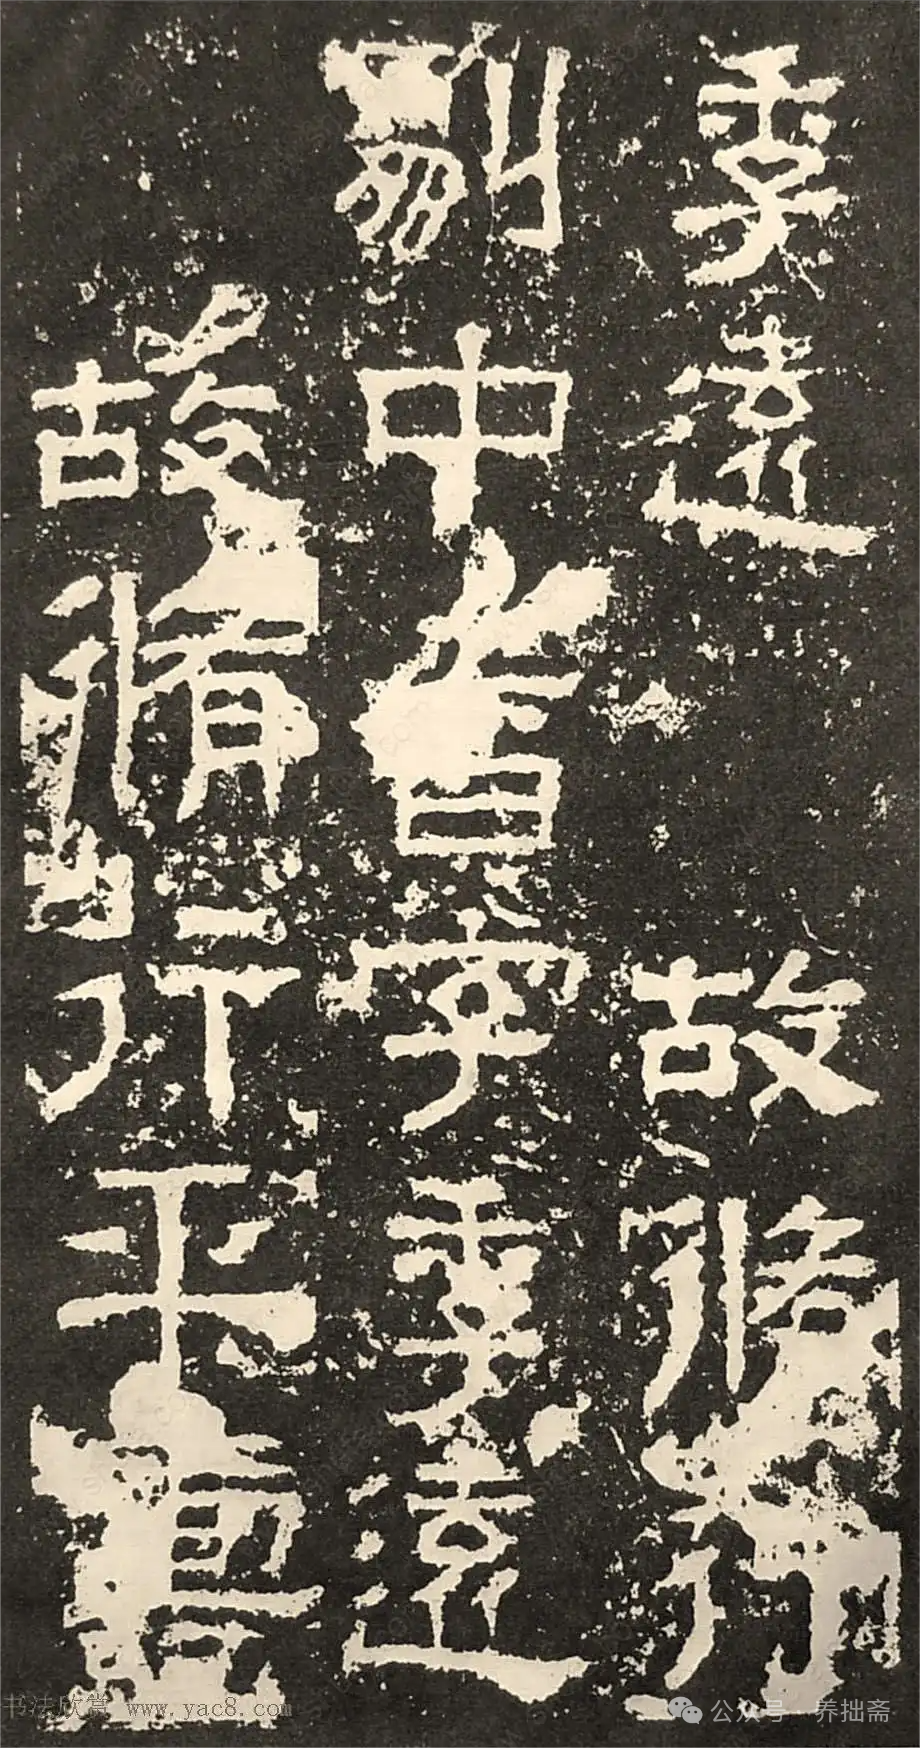 季遠　故脩行
劇中者字季遠
故脩行平壽
书法欣赏 www.yac8.com
公众号 · 养拙斋